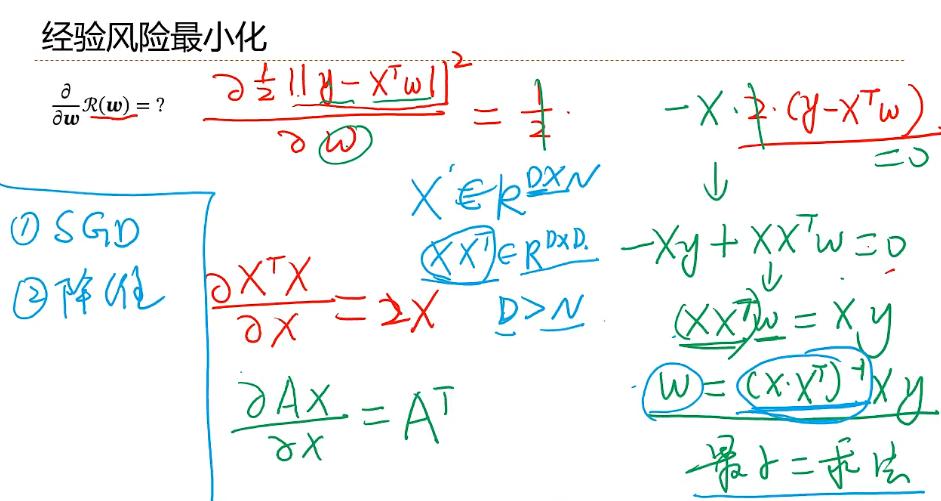 经验风险最小化
∂/∂w R(w) = ?
∂ 1/2 ||y - X^T w||^2 / ∂w = 1/2 · -X · 2 · (y - X^T w) = 0
↓
-Xy + XX^T w = 0
↓
(XX^T) w = Xy
w = (X·X^T)^-1 Xy
最小二乘法
X ∈ R^{D×N}
XX^T ∈ R^{D×D}
D > N
∂X^T X / ∂X = 2X
∂AX / ∂X = A^T
① SGD
② 降维